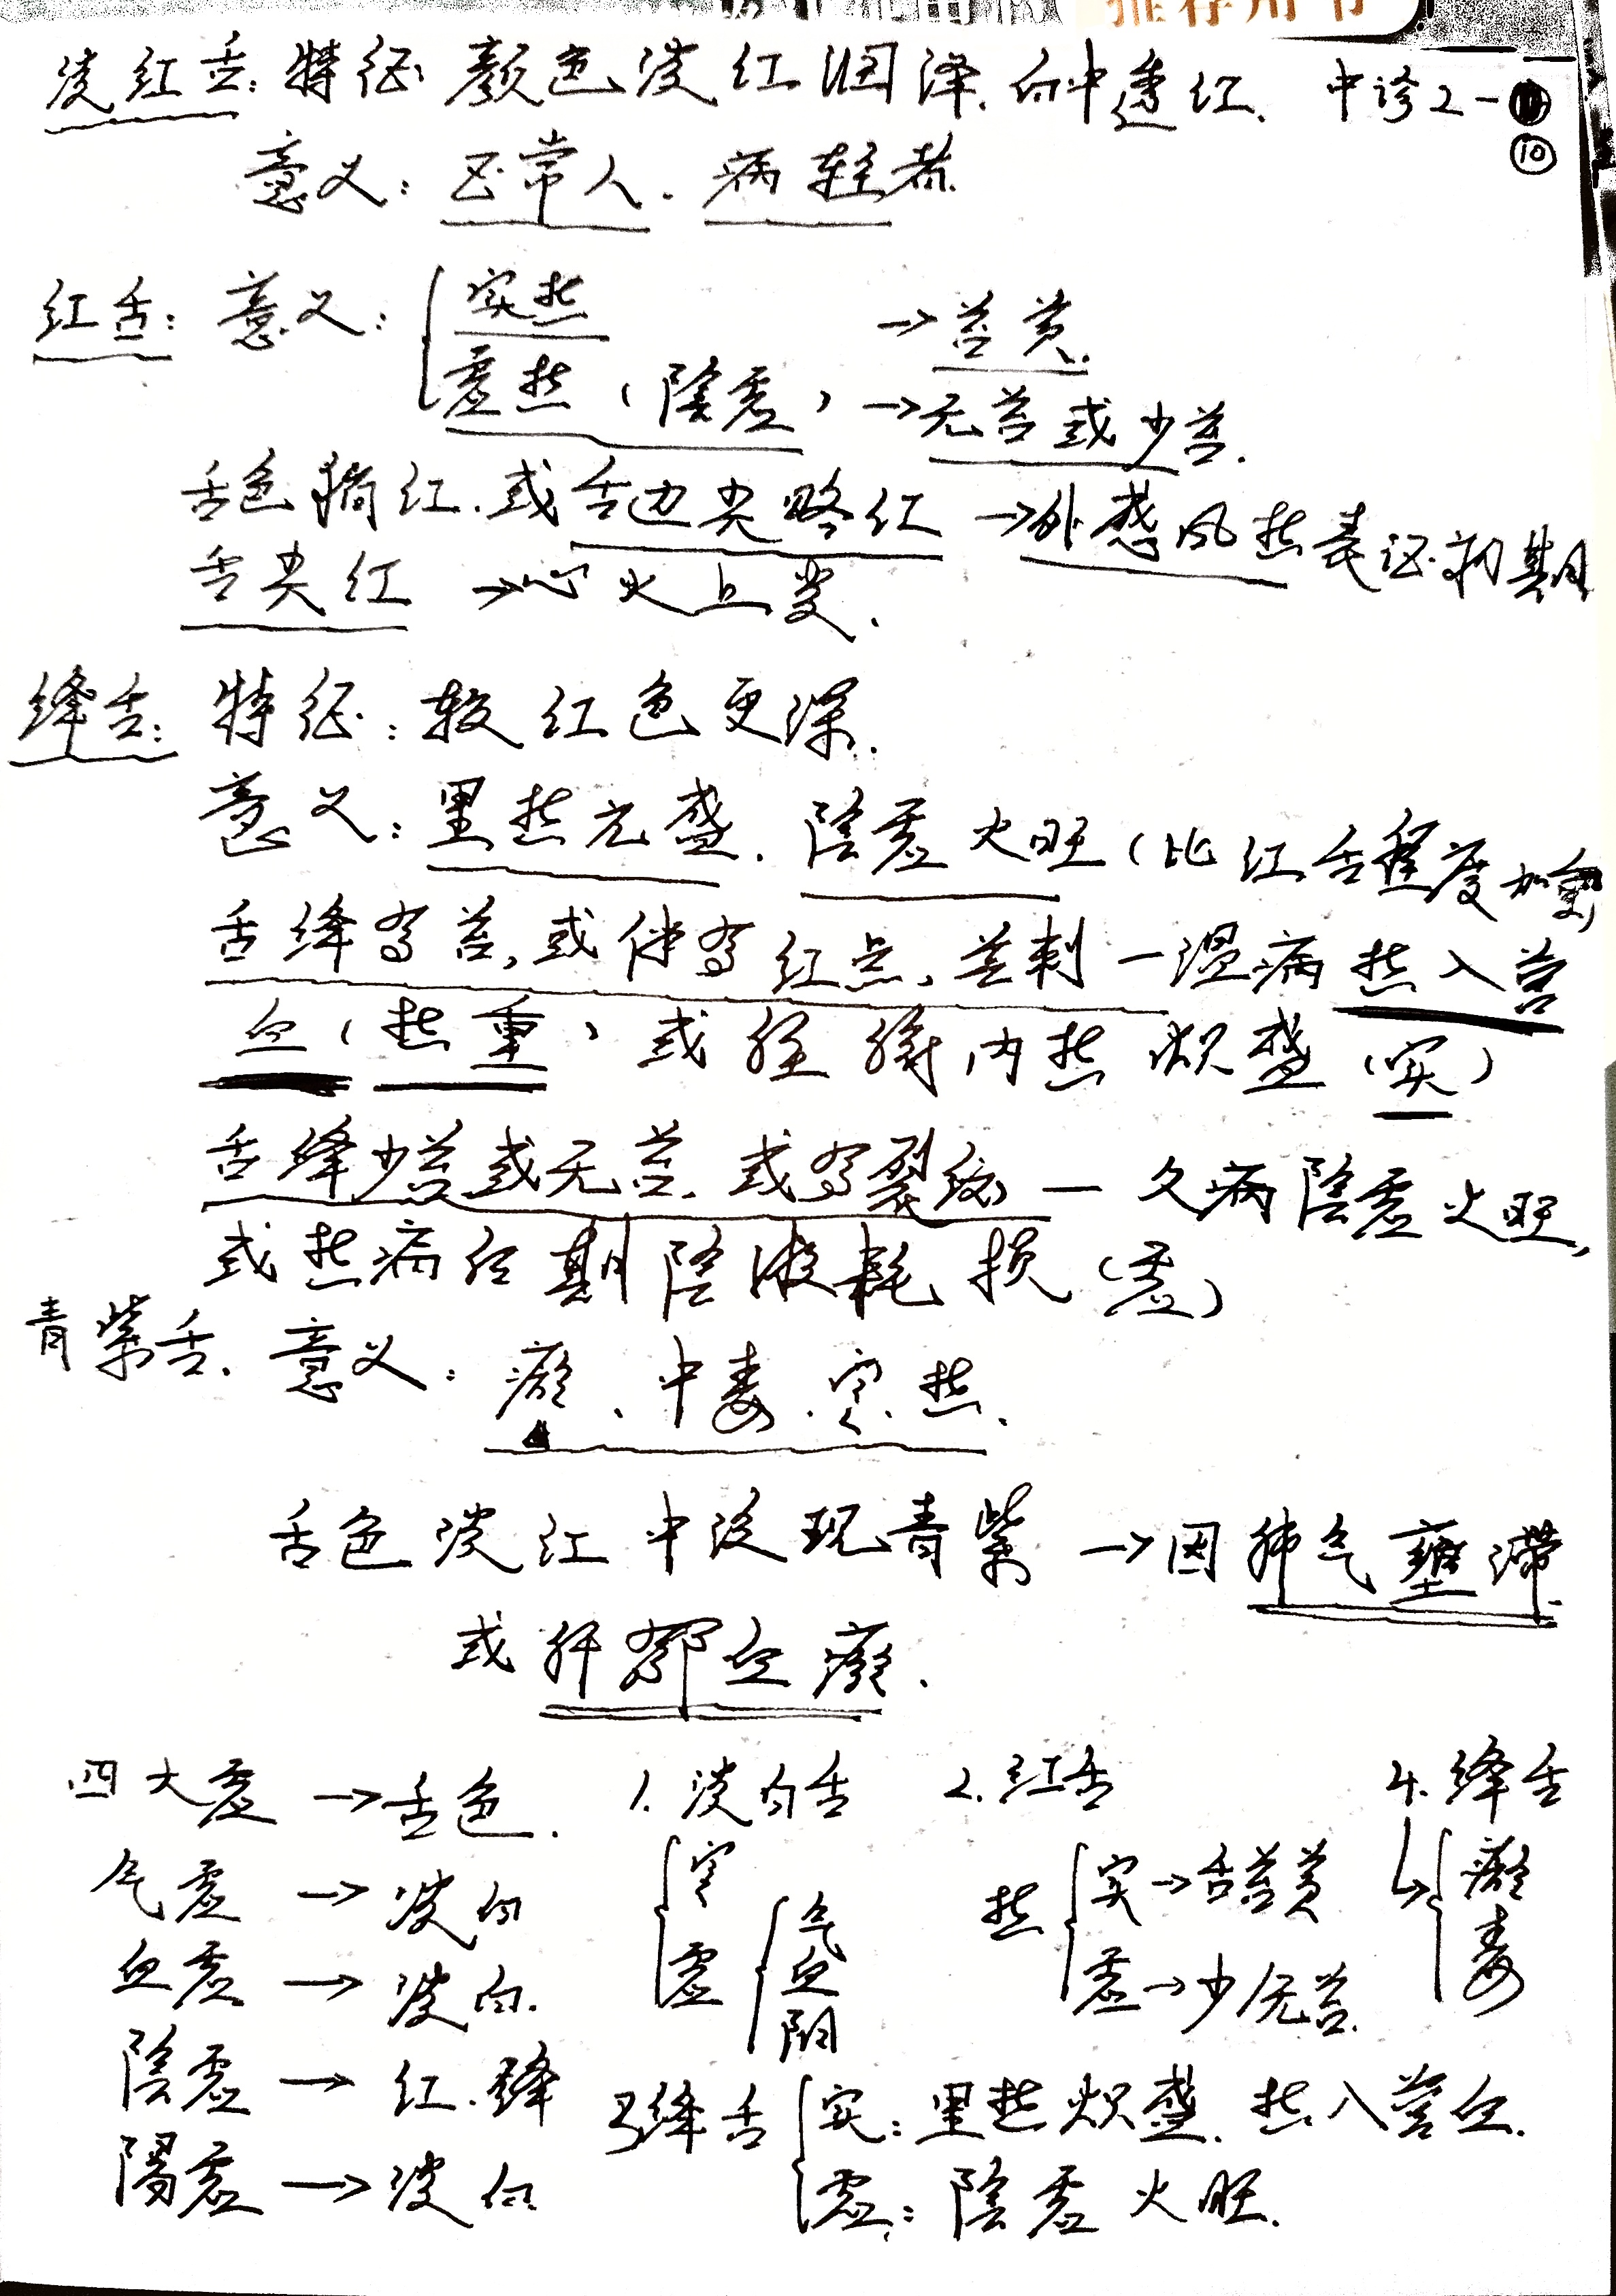 推荐用书
淡红舌:特征 颜色淡红润泽.白中透红. 中诊2-
⑩
意义:正常人.病轻者.
红舌:意义:{实热 →苔黄.
虚热(陰虚)→无苔或少苔.
舌色稍红.或舌边尖略红→外感风热表证初期
舌尖红→心火上炎.
绛舌:特征:较红色更深.
意义:里热亢盛.陰虚火旺(比红舌程度加重)
舌绛有苔,或伴有红点、芒刺—温病热入营
血(热重)或脏腑内热炽盛(实)
舌绛少苔或无苔.或有裂纹—久病陰虚火旺,
或热病后期陰液耗损(虚)
青紫舌.意义:瘀、中毒.寒.热.
舌色淡红中泛现青紫→因肺气壅滞.
或肝郁血瘀.
四大虚→舌色. 1.淡白舌 2.红舌 4.绛舌
气虚→淡白 {寒 {气 热{实→舌苔黄 ↳{瘀
血虚→淡白. 虚 血 虚→少/无苔. 毒
陰虚→红.绛 阳
3绛舌{实:里热炽盛.热入营血.
陽虚→淡白 虚:陰虚火旺.